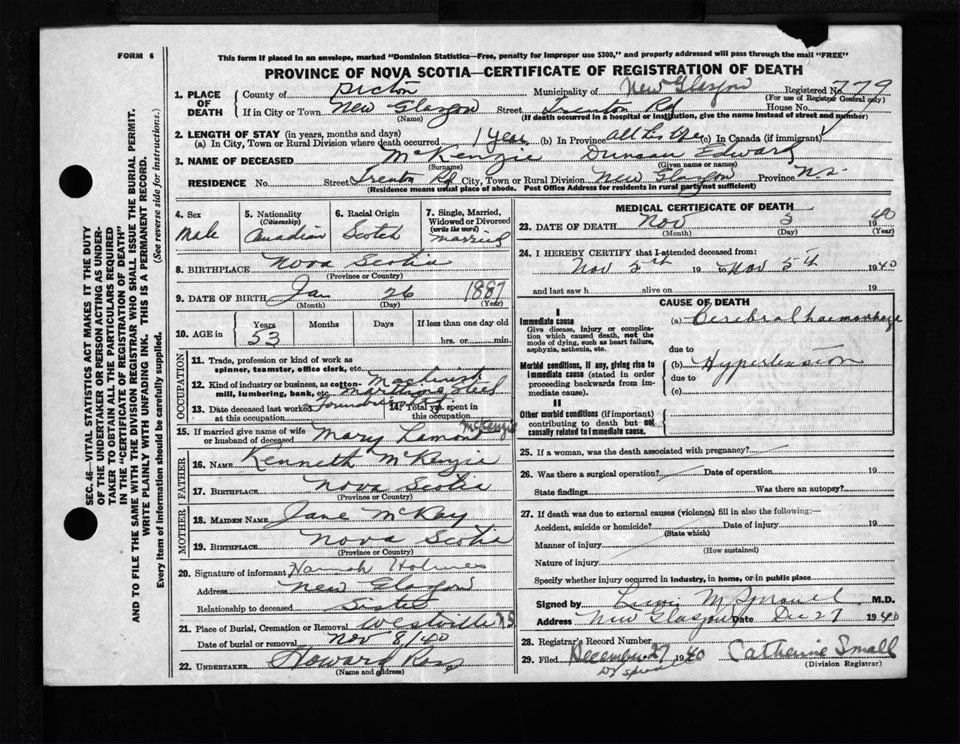 FORM 6
This form if placed in an envelope, marked "Dominion Statistics—Free, penalty for improper use $300," and properly addressed will pass through the mail "FREE"
PROVINCE OF NOVA SCOTIA—CERTIFICATE OF REGISTRATION OF DEATH
1. PLACE OF DEATH County of Pictou Municipality of New Glasgow Registered No. 779
(For use of Registrar General only)
If in City or Town New Glasgow Street Trenton Rd House No.
(Name) (If death occurred in a hospital or institution, give the name instead of street and number)
2. LENGTH OF STAY (in years, months and days)
(a) In City, Town or Rural Division where death occurred 1 year (b) In Province all his life (c) In Canada (if immigrant)
3. NAME OF DECEASED McKenzie Duncan Edward
(Surname) (Given name or names)
RESIDENCE No. Street Trenton Rd City, Town or Rural Division New Glasgow Province N.S.
(Residence means usual place of abode. Post Office Address for residents in rural parts not sufficient)
4. Sex Male
5. Nationality (Citizenship) Canadian
6. Racial Origin Scotch
7. Single, Married, Widowed or Divorced (write the word) married
8. BIRTHPLACE Nova Scotia
(Province or Country)
9. DATE OF BIRTH Jan 26 1887
(Month) (Day) (Year)
10. AGE in Years 53 Months Days If less than one day old hrs. or min.
OCCUPATION
11. Trade, profession or kind of work as spinner, teamster, office clerk, etc. Machinist
12. Kind of industry or business, as cotton-mill, lumbering, bank, etc. Steel
13. Date deceased last worked at this occupation 14. Total yrs. spent in this occupation
15. If married give name of wife or husband of deceased Mary Lamont McKenzie
FATHER
16. NAME Kenneth McKenzie
17. BIRTHPLACE Nova Scotia
(Province or Country)
MOTHER
18. MAIDEN NAME Jane McKay
19. BIRTHPLACE Nova Scotia
(Province or Country)
20. Signature of informant Hannah Holmes
Address New Glasgow
Relationship to deceased Sister
21. Place of Burial, Cremation or Removal Westville N.S.
Date of burial or removal Nov 8/40
22. UNDERTAKER Howard Ross
(Name and address)
MEDICAL CERTIFICATE OF DEATH
23. DATE OF DEATH Nov 5 1940
(Month) (Day) (Year)
24. I HEREBY CERTIFY that I attended deceased from:
Nov 5th 19 to Nov 5th 1940
and last saw h alive on 19
CAUSE OF DEATH
I
Immediate cause
Give disease, injury or complication which caused death, not the mode of dying, such as heart failure, asphyxia, asthenia, etc.
(a) Cerebral haemorrhage
due to
Morbid conditions, if any, giving rise to immediate cause (stated in order proceeding backwards from immediate cause).
(b) Hypertension
due to
(c)
II
Other morbid conditions (if important) contributing to death but not causally related to immediate cause.
25. If a woman, was the death associated with pregnancy?
26. Was there a surgical operation? Date of operation 19
State findings Was there an autopsy?
27. If death was due to external causes (violence) fill in also the following:—
Accident, suicide or homicide? Date of injury 19
(State which)
Manner of injury
(How sustained)
Nature of injury
Specify whether injury occurred in industry, in home, or in public place
Signed by M.D.
Address New Glasgow Date Dec 27 1940
28. Registrar's Record Number
29. Filed December 27 1940 Catherine Small
(Division Registrar)
SEC. 46—VITAL STATISTICS ACT MAKES IT THE DUTY
OF THE UNDERTAKER OR PERSON ACTING AS UNDER-
TAKER TO OBTAIN ALL THE PARTICULARS REQUIRED
IN THE "CERTIFICATE OF REGISTRATION OF DEATH"
AND TO FILE THE SAME WITH THE DIVISION REGISTRAR WHO SHALL ISSUE THE BURIAL PERMIT.
WRITE PLAINLY WITH UNFADING INK. THIS IS A PERMANENT RECORD.
Every item of information should be carefully supplied. (See reverse side for instructions.)